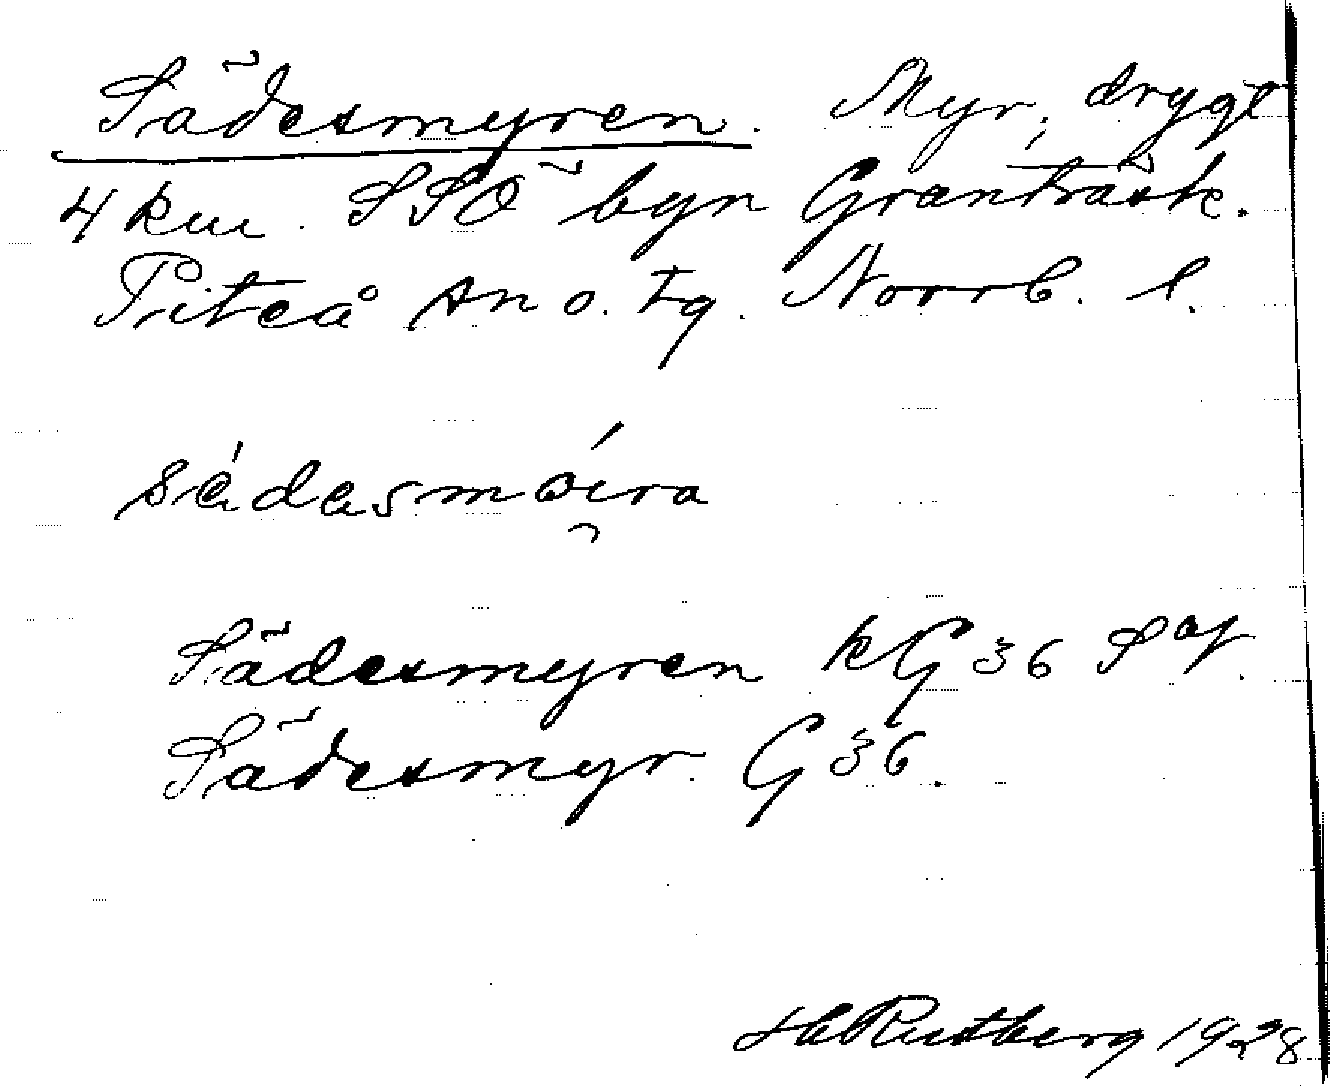 Sädesmyren. Myr, drygt
4 km. SSÖ byn Granträsk.
Piteå sn o. tg. Norrb. l.
sédasmöira
Sädesmyren kG 36 Saf.
Sädesmyr. G 36.
H Rutberg 1928